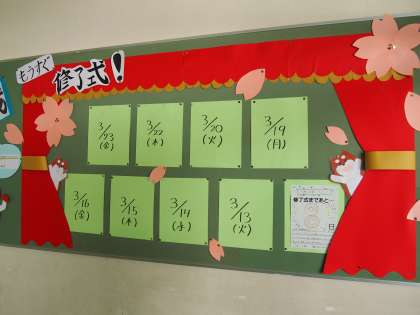 もうすぐ
修了式！
3/23
(金)
3/22
(木)
3/20
(火)
3/19
(月)
3/16
(金)
3/15
(木)
3/14
(水)
3/13
(火)
修了式まであと…
日